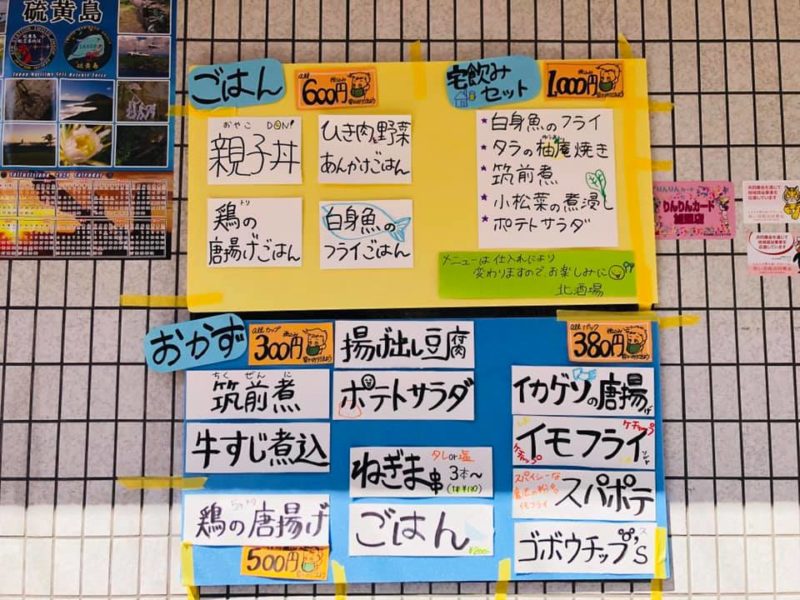 硫黄島
ごはん
all
600円
おやこ DON!
親子丼
ひき肉と野菜
あんかけごはん
鶏の
トリ
唐揚げごはん
白身魚の
フライごはん
宅飲み
セット
1,000円
★白身魚のフライ
★タラの柚庵焼き
★筑前煮
★小松菜の煮浸し
★ポテトサラダ
メニューは仕入れにより
変わりますのでお楽しみに
北酒場
りんりんカード
おかず
allカップ
300円
ちくぜんに
筑前煮
牛すじ煮込
鶏の唐揚げ
500円
揚げ出し豆腐
ポテトサラダ
ねぎま串
タレor塩
3本〜
ごはん
¥200
allパック
380円
イカゲソの唐揚げ
イモフライ
ケチャップ
ケチャップ
スパイシーな
イモフライ
スパポテ
ゴボウチップ'S